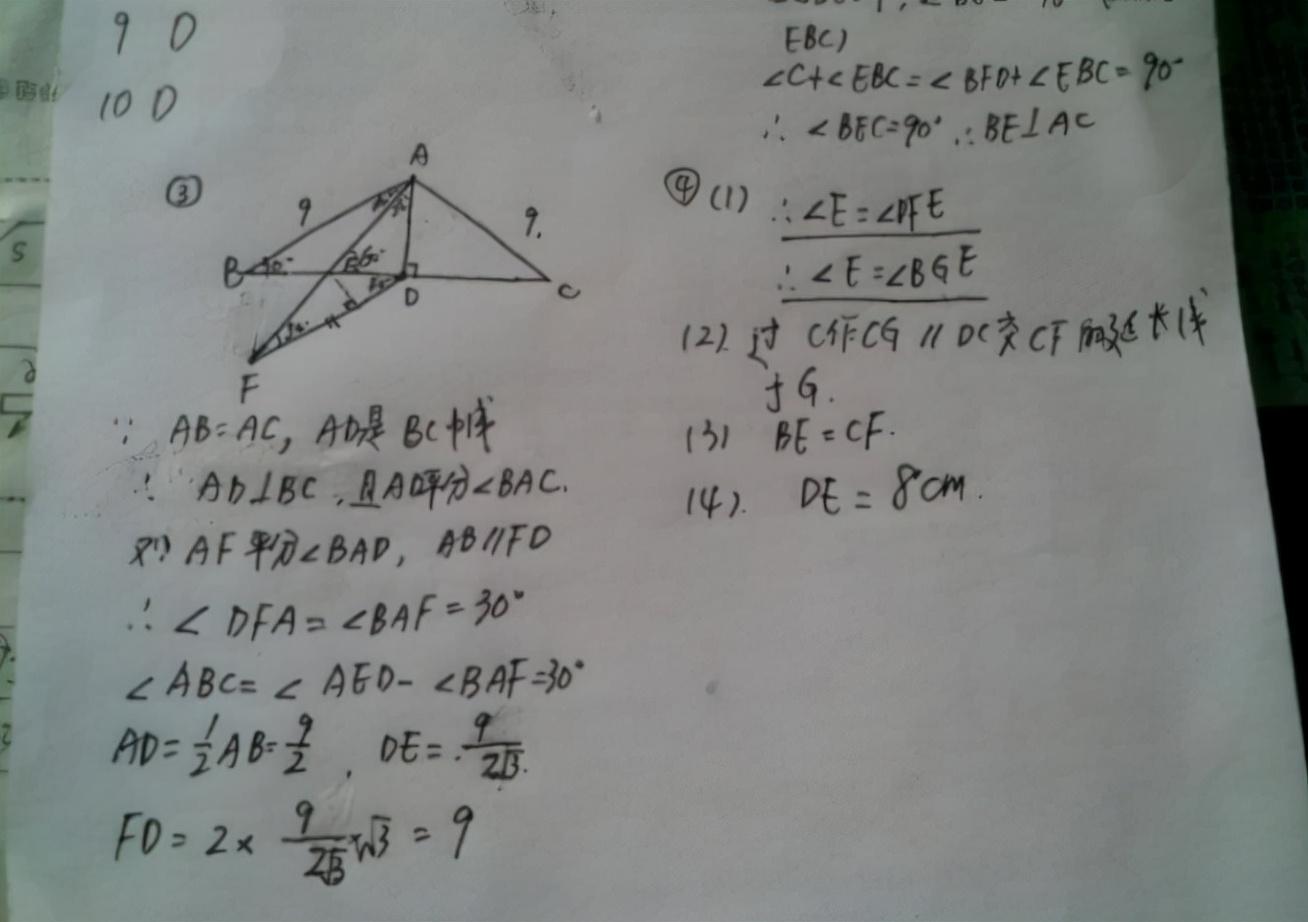 9 D
10 D
③
A
9
9.
B
30°
E 60°
D
C
30°
F
∵ AB=AC, AD是BC中线
∴ AD⊥BC,且AD平分∠BAC.
又∵ AF平分∠BAD, AB//FD
∴ ∠DFA=∠BAF=30°
∠ABC=∠AED-∠BAF=30°
AD=1/2AB=9/2, DE=9/2√3.
FD=2×9/2√3×√3=9
EBC)
∠C+∠EBC=∠BFD+∠EBC=90°
∴ ∠BEC=90° ∴BE⊥AC
④(1) ∴∠E=∠DFE
∴∠E=∠BGE
(2). 过C作CG//DC交CF的延长线
于G.
(3) BE=CF.
(4). DE=8cm.